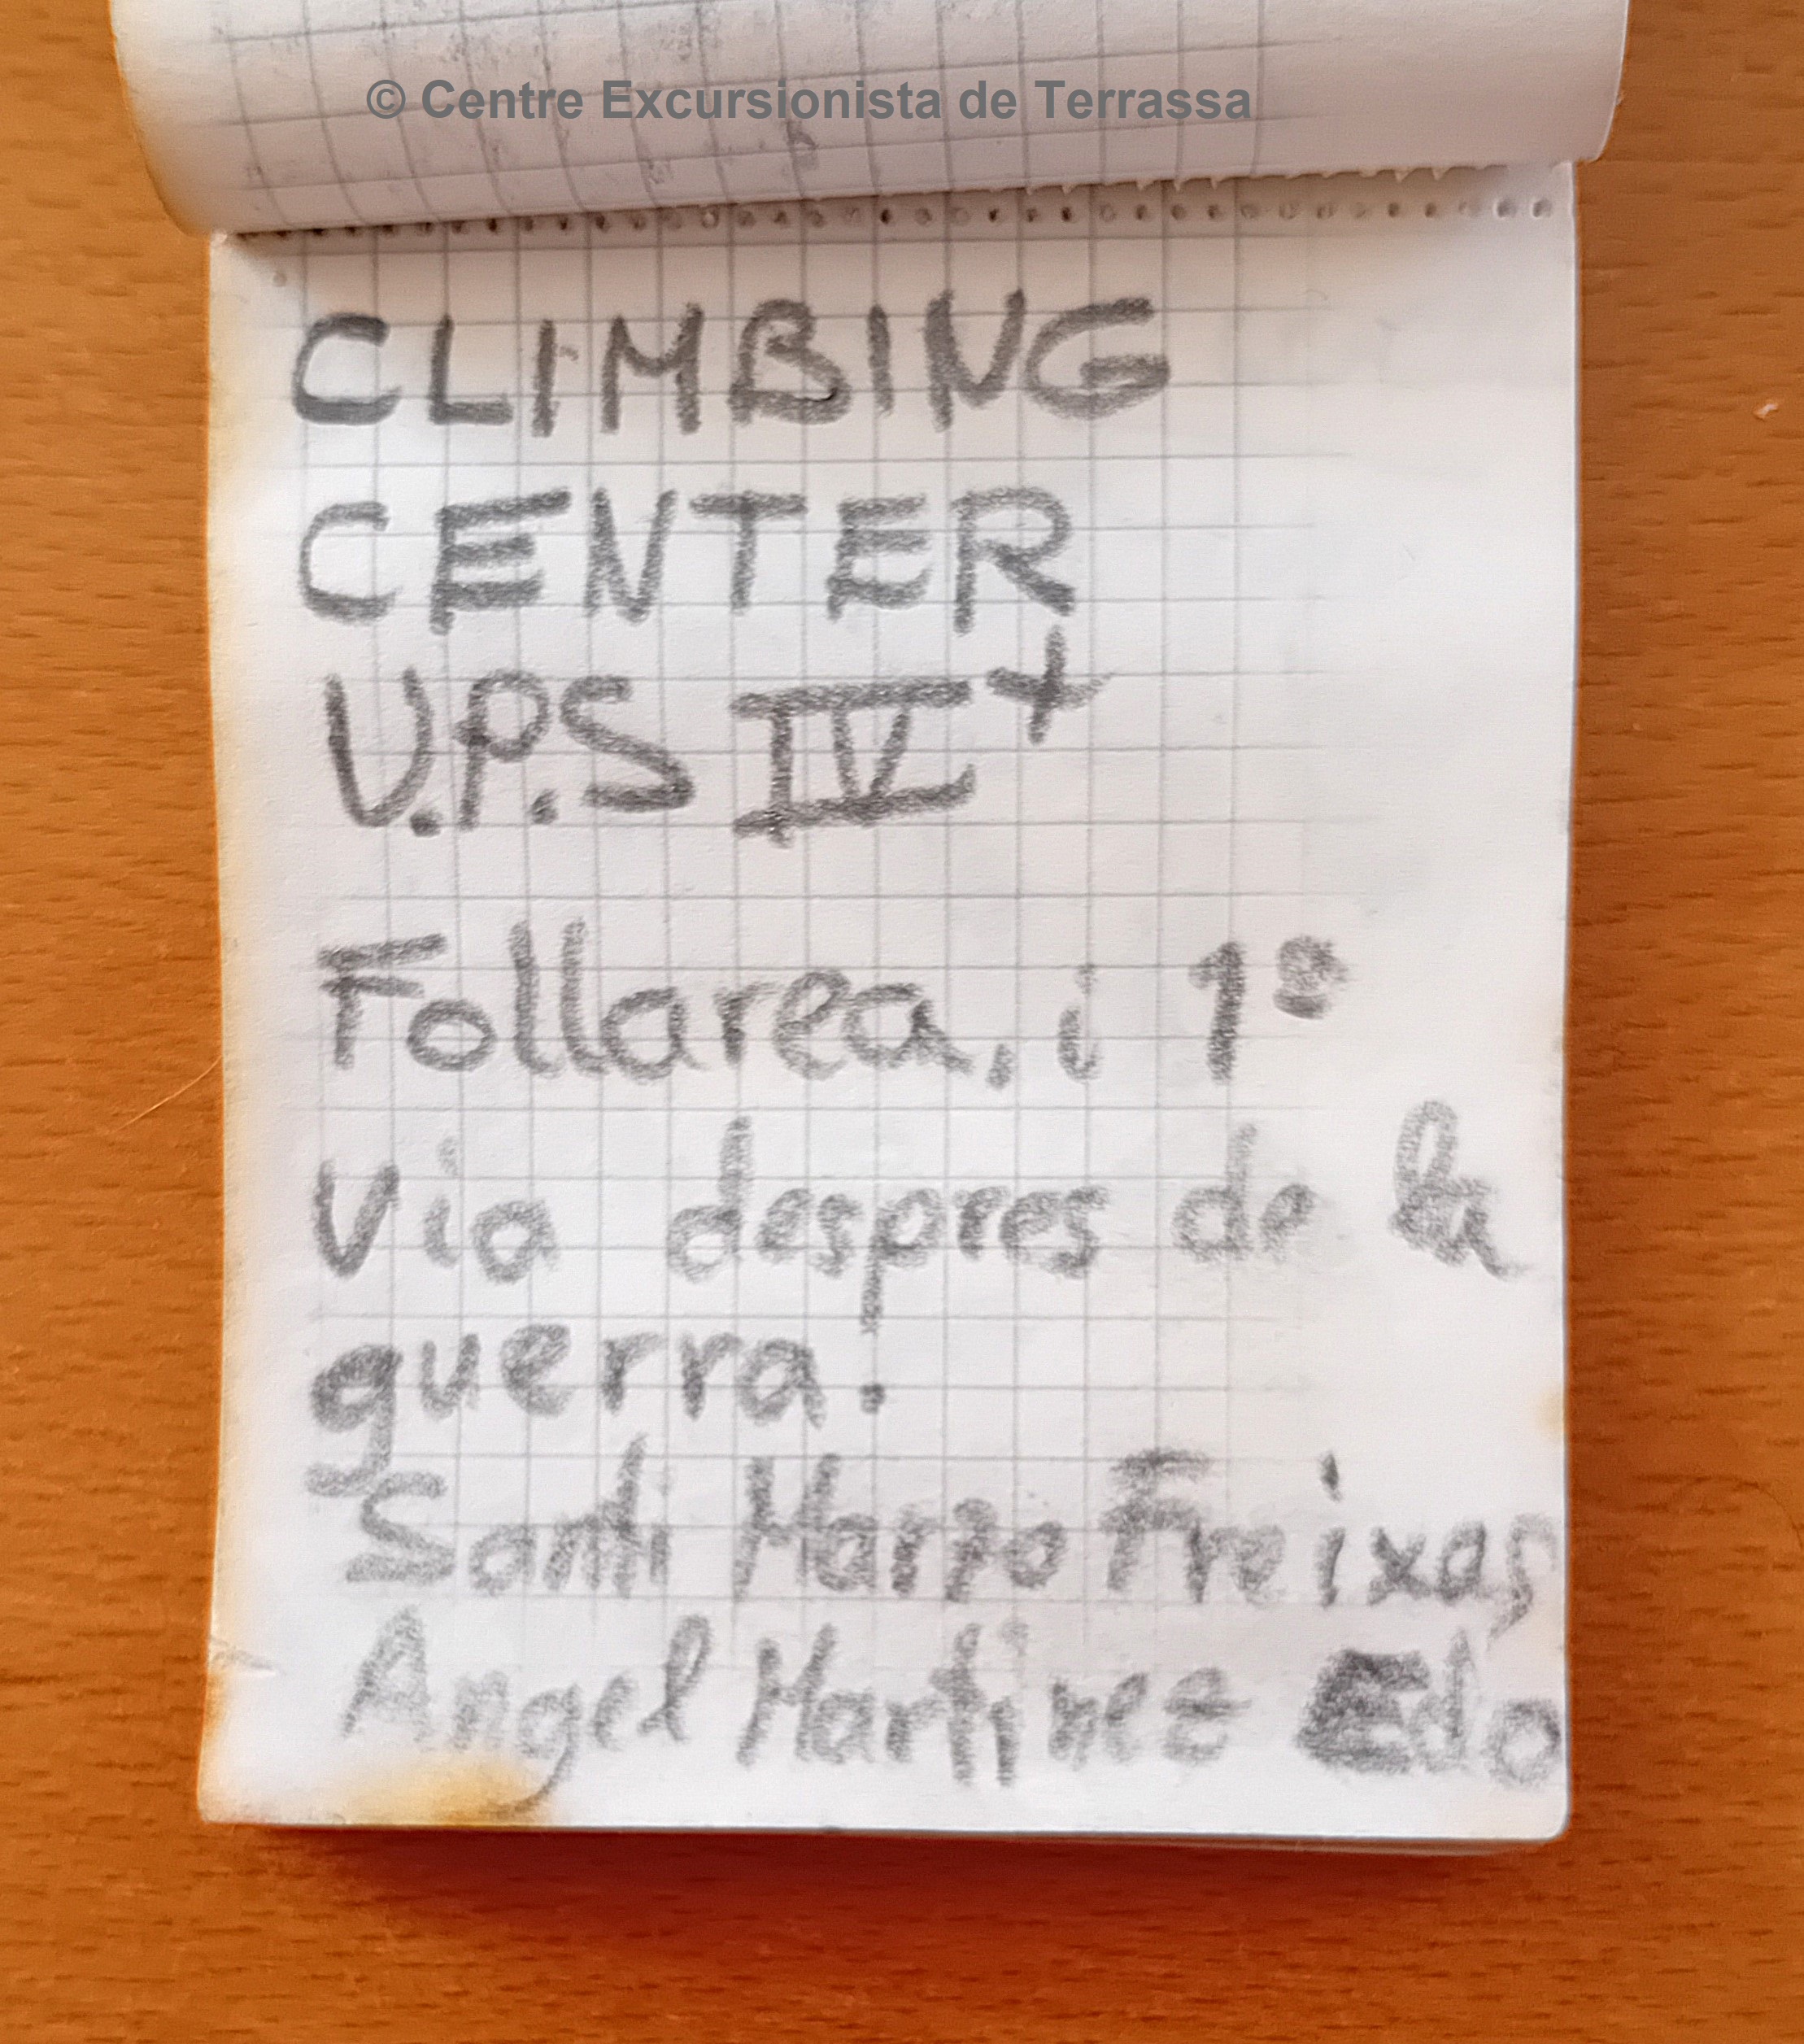 © Centre Excursionista de Terrassa
CLIMBING
CENTER
V.P.S IV+
Follarea, i 1ª
Via despres de la
guerra!
Santi Marzo Freixas
Angel Martinez Edo